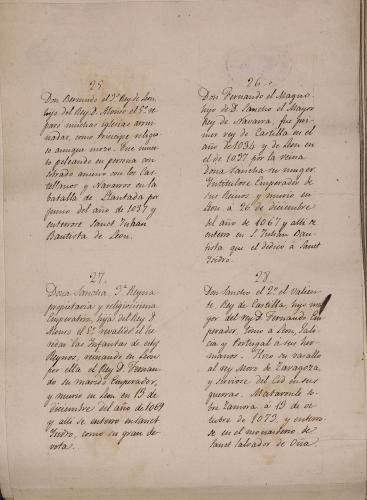 25.
Don Bermudo el 3º Rey de Leon,
hijo del Rey D. Alonso el 5º re-
paró muchas iglesias arrui-
nadas, como Principe religio-
so aunque mozo. Fue muer-
to peleando en persona con
esforzado animo con los Cas-
tellanos y Navarros en la
batalla de Llantada por
Junio del año de 1037 y
enterrose Sanct Juhan
Bautista de Leon.
26.
Don Fernando el Magno,
hijo de D. Sancho el Mayor
Rey de Navarra, fue pri-
mer rey de Castilla en el
año de 1034 y de Leon en
el de 1037 por la reina
Doña Sancha su muger.
Intitulose Emperador de
sus Reinos y murió en
Leon á 26 de diciembre
del año de 1067 y alli se
enterro en S. Juhan Bau-
tista que el dedicó a Sanct
Isidro.
27.
Doña Sancha, 3ª Reyna
propietaria y religiosisima
Emperatriz, hija del Rey D.
Alonso el 5º. Invalidó el he-
redar las Infantas de estos
Reynos, reinando en Leon
por ella el Rey D. Fernan-
do su marido Emperador,
y murio en Leon en 13 de
diciembre del año de 1069
y alli se enterro en Sanct
Isidro, como su gran de-
vota.
28.
Don Sancho el 2º el valien-
te, Rey de Castilla, hijo ma-
yor del rey D. Fernando Em-
perador. Tomó a Leon, Gali-
cia y Portugal á sus her-
manos. Hizo su vasallo
al rey Moro de Zaragoza
y sirviose del Cid en sus
guerras. Mataronle so-
bre Zamora á 13 de oc-
tubre de 1073, y enterro-
se en el monasterio de
Sanct Salvador de Oña.